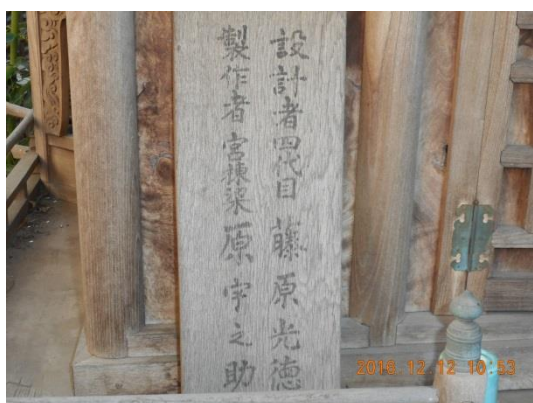 設計者四代目 藤原光徳
製作者 宮棟梁 原宇之助
2018.12.12 10:53